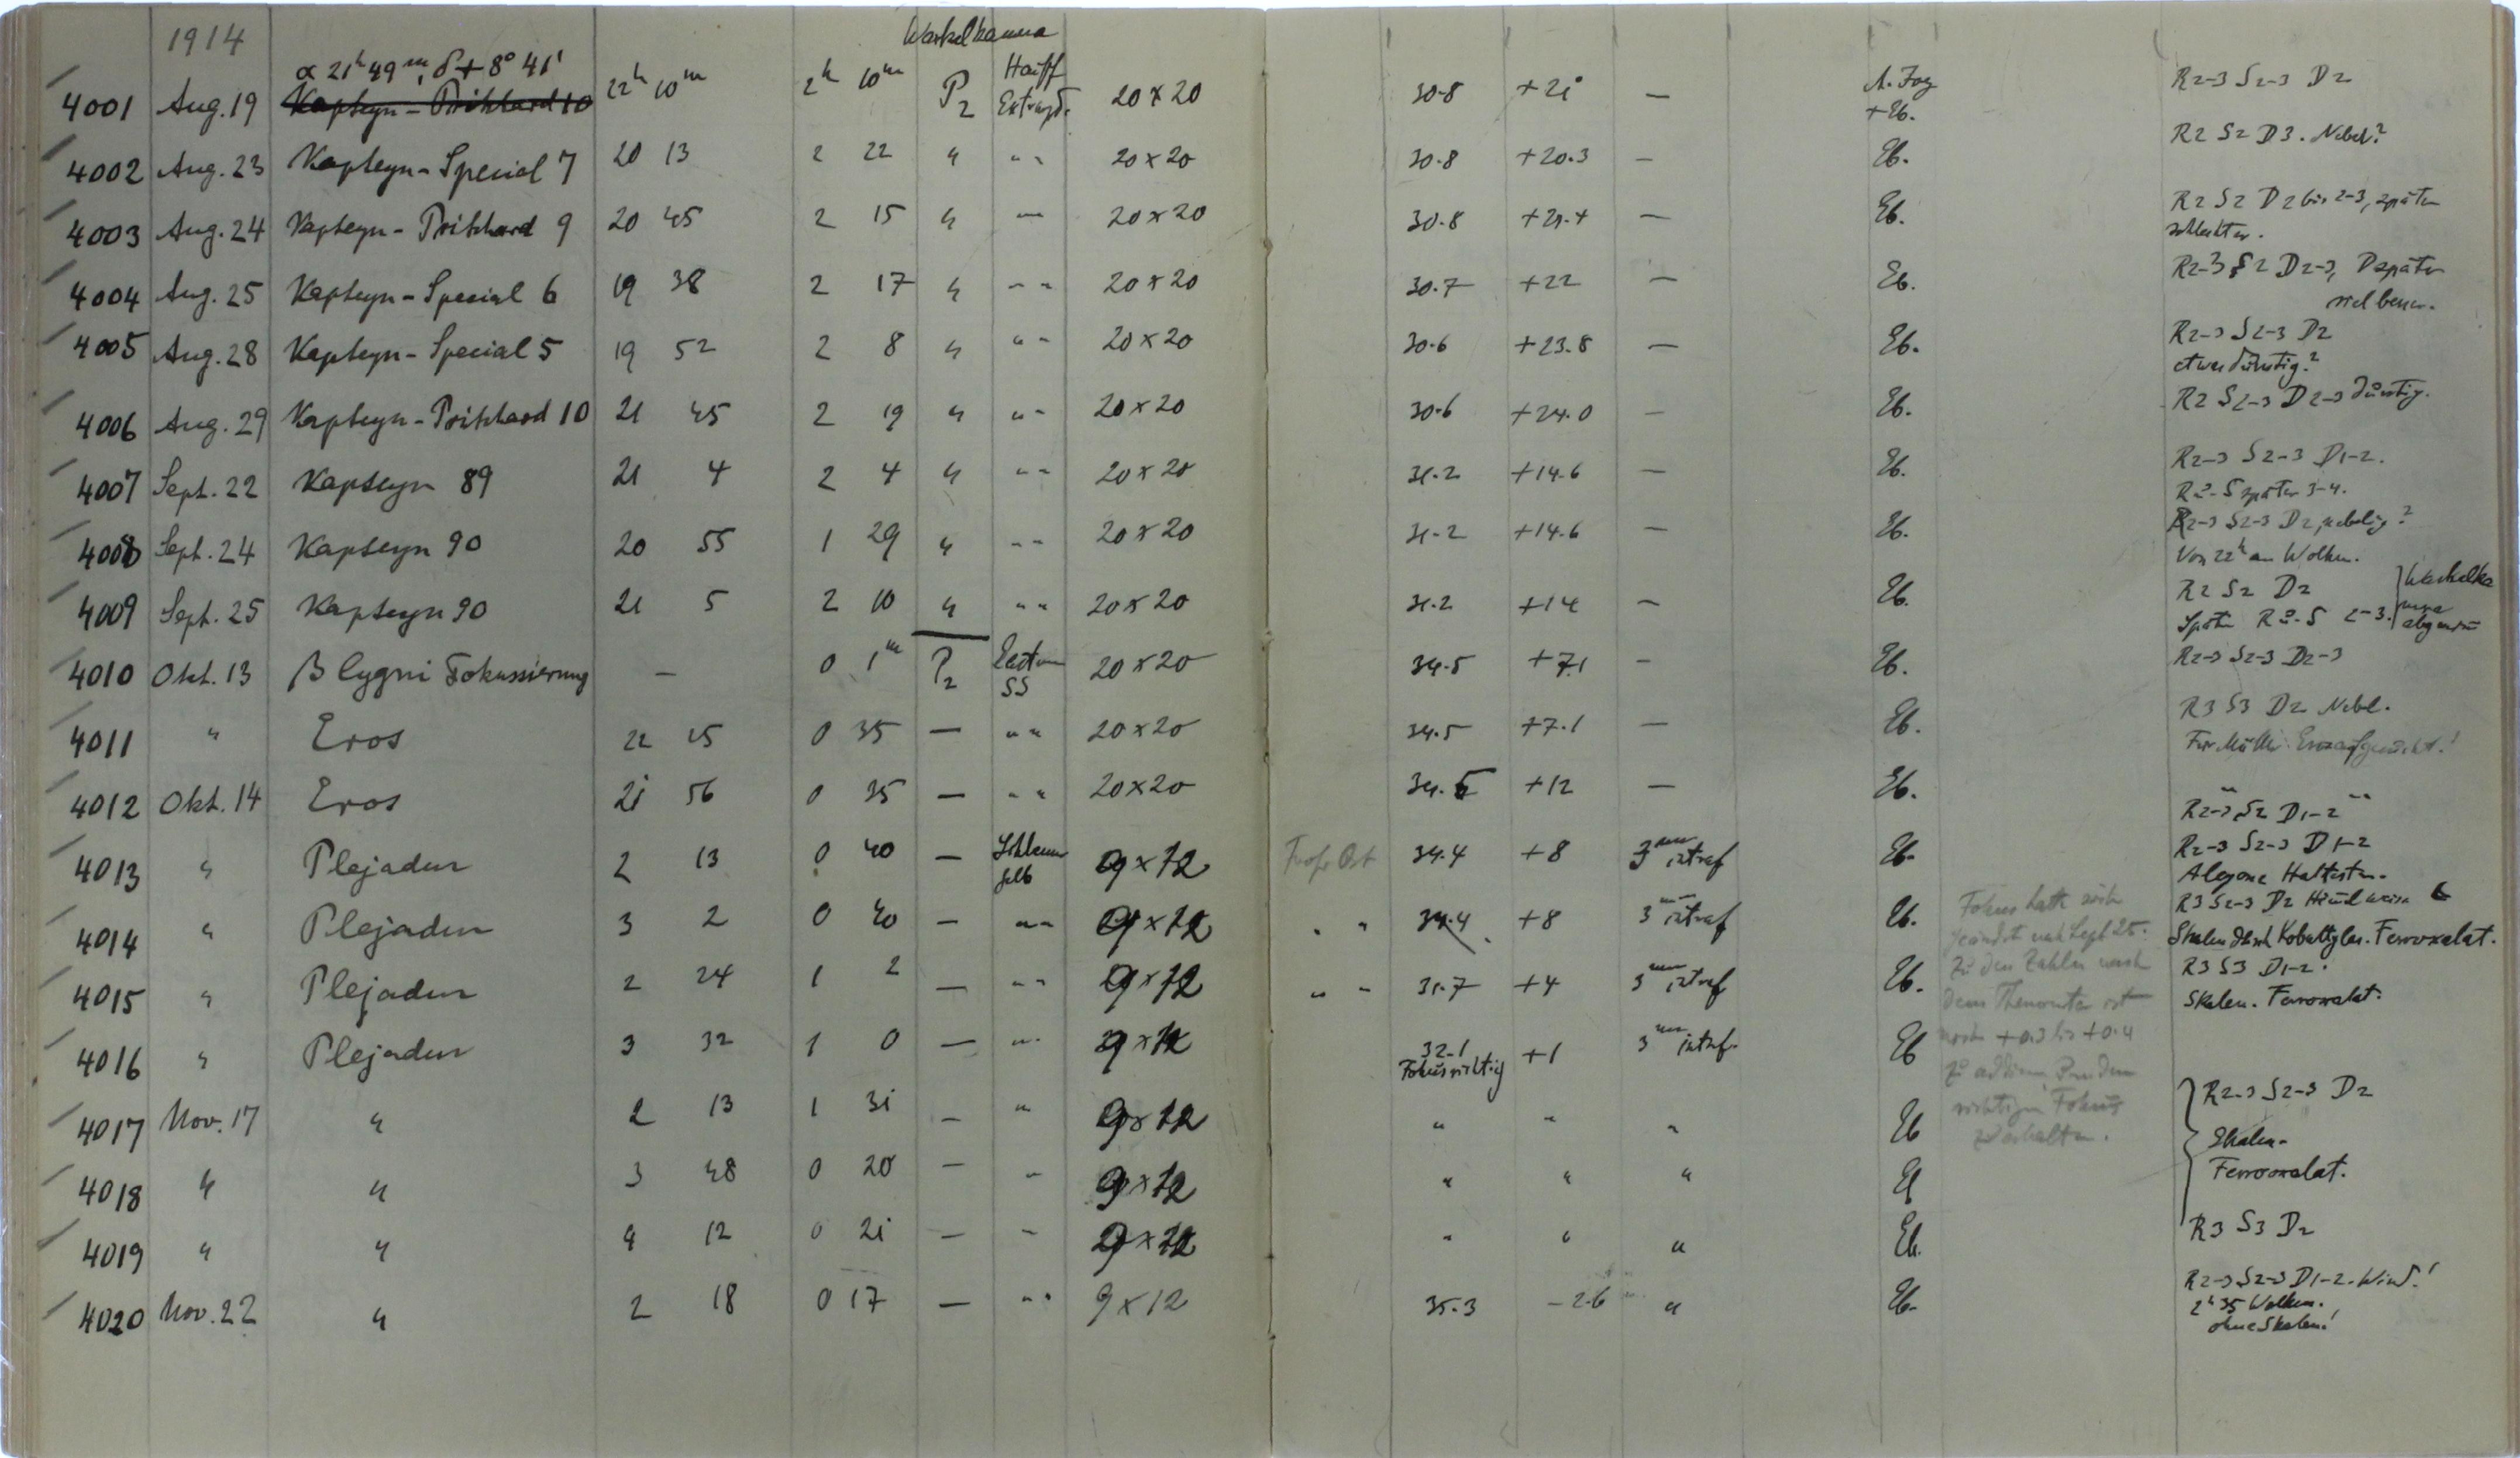 1914
α 21ʰ 49ᵐ, δ + 8° 41'
4001 Aug. 19 Kapteyn - Pritchard 10 22ʰ 10ᵐ 2ʰ 10ᵐ P2 Hauff 20 x 20 30.8 +21 — + Eb. R2-3 S2-3 D2
4002 Aug. 23 Kapteyn - Special 7 20 13 2 22 " " " 20 x 20 30.8 +20.3 — Eb. R2 S2 D3. Nebel?
4003 Aug. 24 Kapteyn - Pritchard 9 20 45 2 15 " — 20 x 20 30.8 — Eb. R2 S2 D2 bis 2-3, später
schlechter.
4004 Aug. 25 Kapteyn - Special 6 19 38 2 17 " " " 20 x 20 30.7 +22 — Eb. R2-3 S2 D2-3, D später
viel besser.
4005 Aug. 28 Kapteyn - Special 5 19 52 2 8 " " " 20 x 20 30.6 +23.8 — Eb. R2-3 S2-3 D2
etwas dunstig?
4006 Aug. 29 Kapteyn - Pritchard 10 21 45 2 19 " " " 20 x 20 30.6 +24.0 — Eb. R2 S2-3 D2-3 dunstig.
4007 Sept. 22 Kapteyn 89 21 4 2 4 " " " 20 x 20 31.2 +14.6 — Eb. R2-3 S2-3 D1-2.
R u. S später 3-4.
4008 Sept. 24 Kapteyn 90 20 55 1 29 " " " 20 x 20 31.2 +14.6 — Eb. R2-3 S2-3 D2, nebelig?
Von 22ʰ an Wolken.
4009 Sept. 25 Kapteyn 90 21 5 2 10 " " " 20 x 20 31.2 +14 — Eb. R2 S2 D2
Später R u. S 2-3.
4010 Okt. 13 β Cygni Fokussierung — 0 1ᵐ P2 SS 20 x 20 34.5 +7.1 — Eb. R2-3 S2-3 D2-3
4011 " Eros 22 25 0 35 — " " 20 x 20 34.5 +7.1 — Eb. R3 S3 D2 Nebel.
4012 Okt. 14 Eros 21 56 0 35 — " " 20 x 20 34.5 +12 — Eb. R2-3 S2 D1-2
4013 " Plejaden 2 13 0 40 — gelb 9 x 12 34.4 +8 3ᵐᵐ intraf Eb. R2-3 S2-3 D1-2
Alcyone Haltestern.
4014 " Plejaden 3 2 0 40 — " " 9 x 12 " " 34.4 +8 3ᵐᵐ intraf Eb. R3 S2-3 D2
Skalen durch Kobaltglas. Ferroxalat.
4015 " Plejaden 2 24 1 2 — " " 9 x 12 " " 31.7 +4 3ᵐᵐ intraf Eb. R3 S3 D1-2.
Skalen. Ferroxalat.
4016 " Plejaden 3 32 1 0 — " " 9 x 12 32.1 +1 3ᵐᵐ intraf. Eb
Fokus richtig
Fokus hatte sich
geändert nach Sept 25.
Zu den Zahlen nach
dem Thermometer ist
noch +0.3 bis +0.4
zu addieren, um den
richtigen Fokus
zu erhalten.
4017 Nov. 17 " 2 13 1 31 — " 9 x 12 " " " Eb R2-3 S2-3 D2
Skalen.
4018 " " 3 48 0 20 — " 9 x 12 " " " Eb Ferrooxalat.
4019 " " 4 12 0 21 — " 9 x 12 " " " Eb. R3 S3 D2
4020 Nov. 22 " 2 18 0 17 — " " 9 x 12 35.3 -2.6 " Eb. R2-3 S2-3 D1-2. Wind!
2ʰ 35 Wolken.
ohne Skalen!